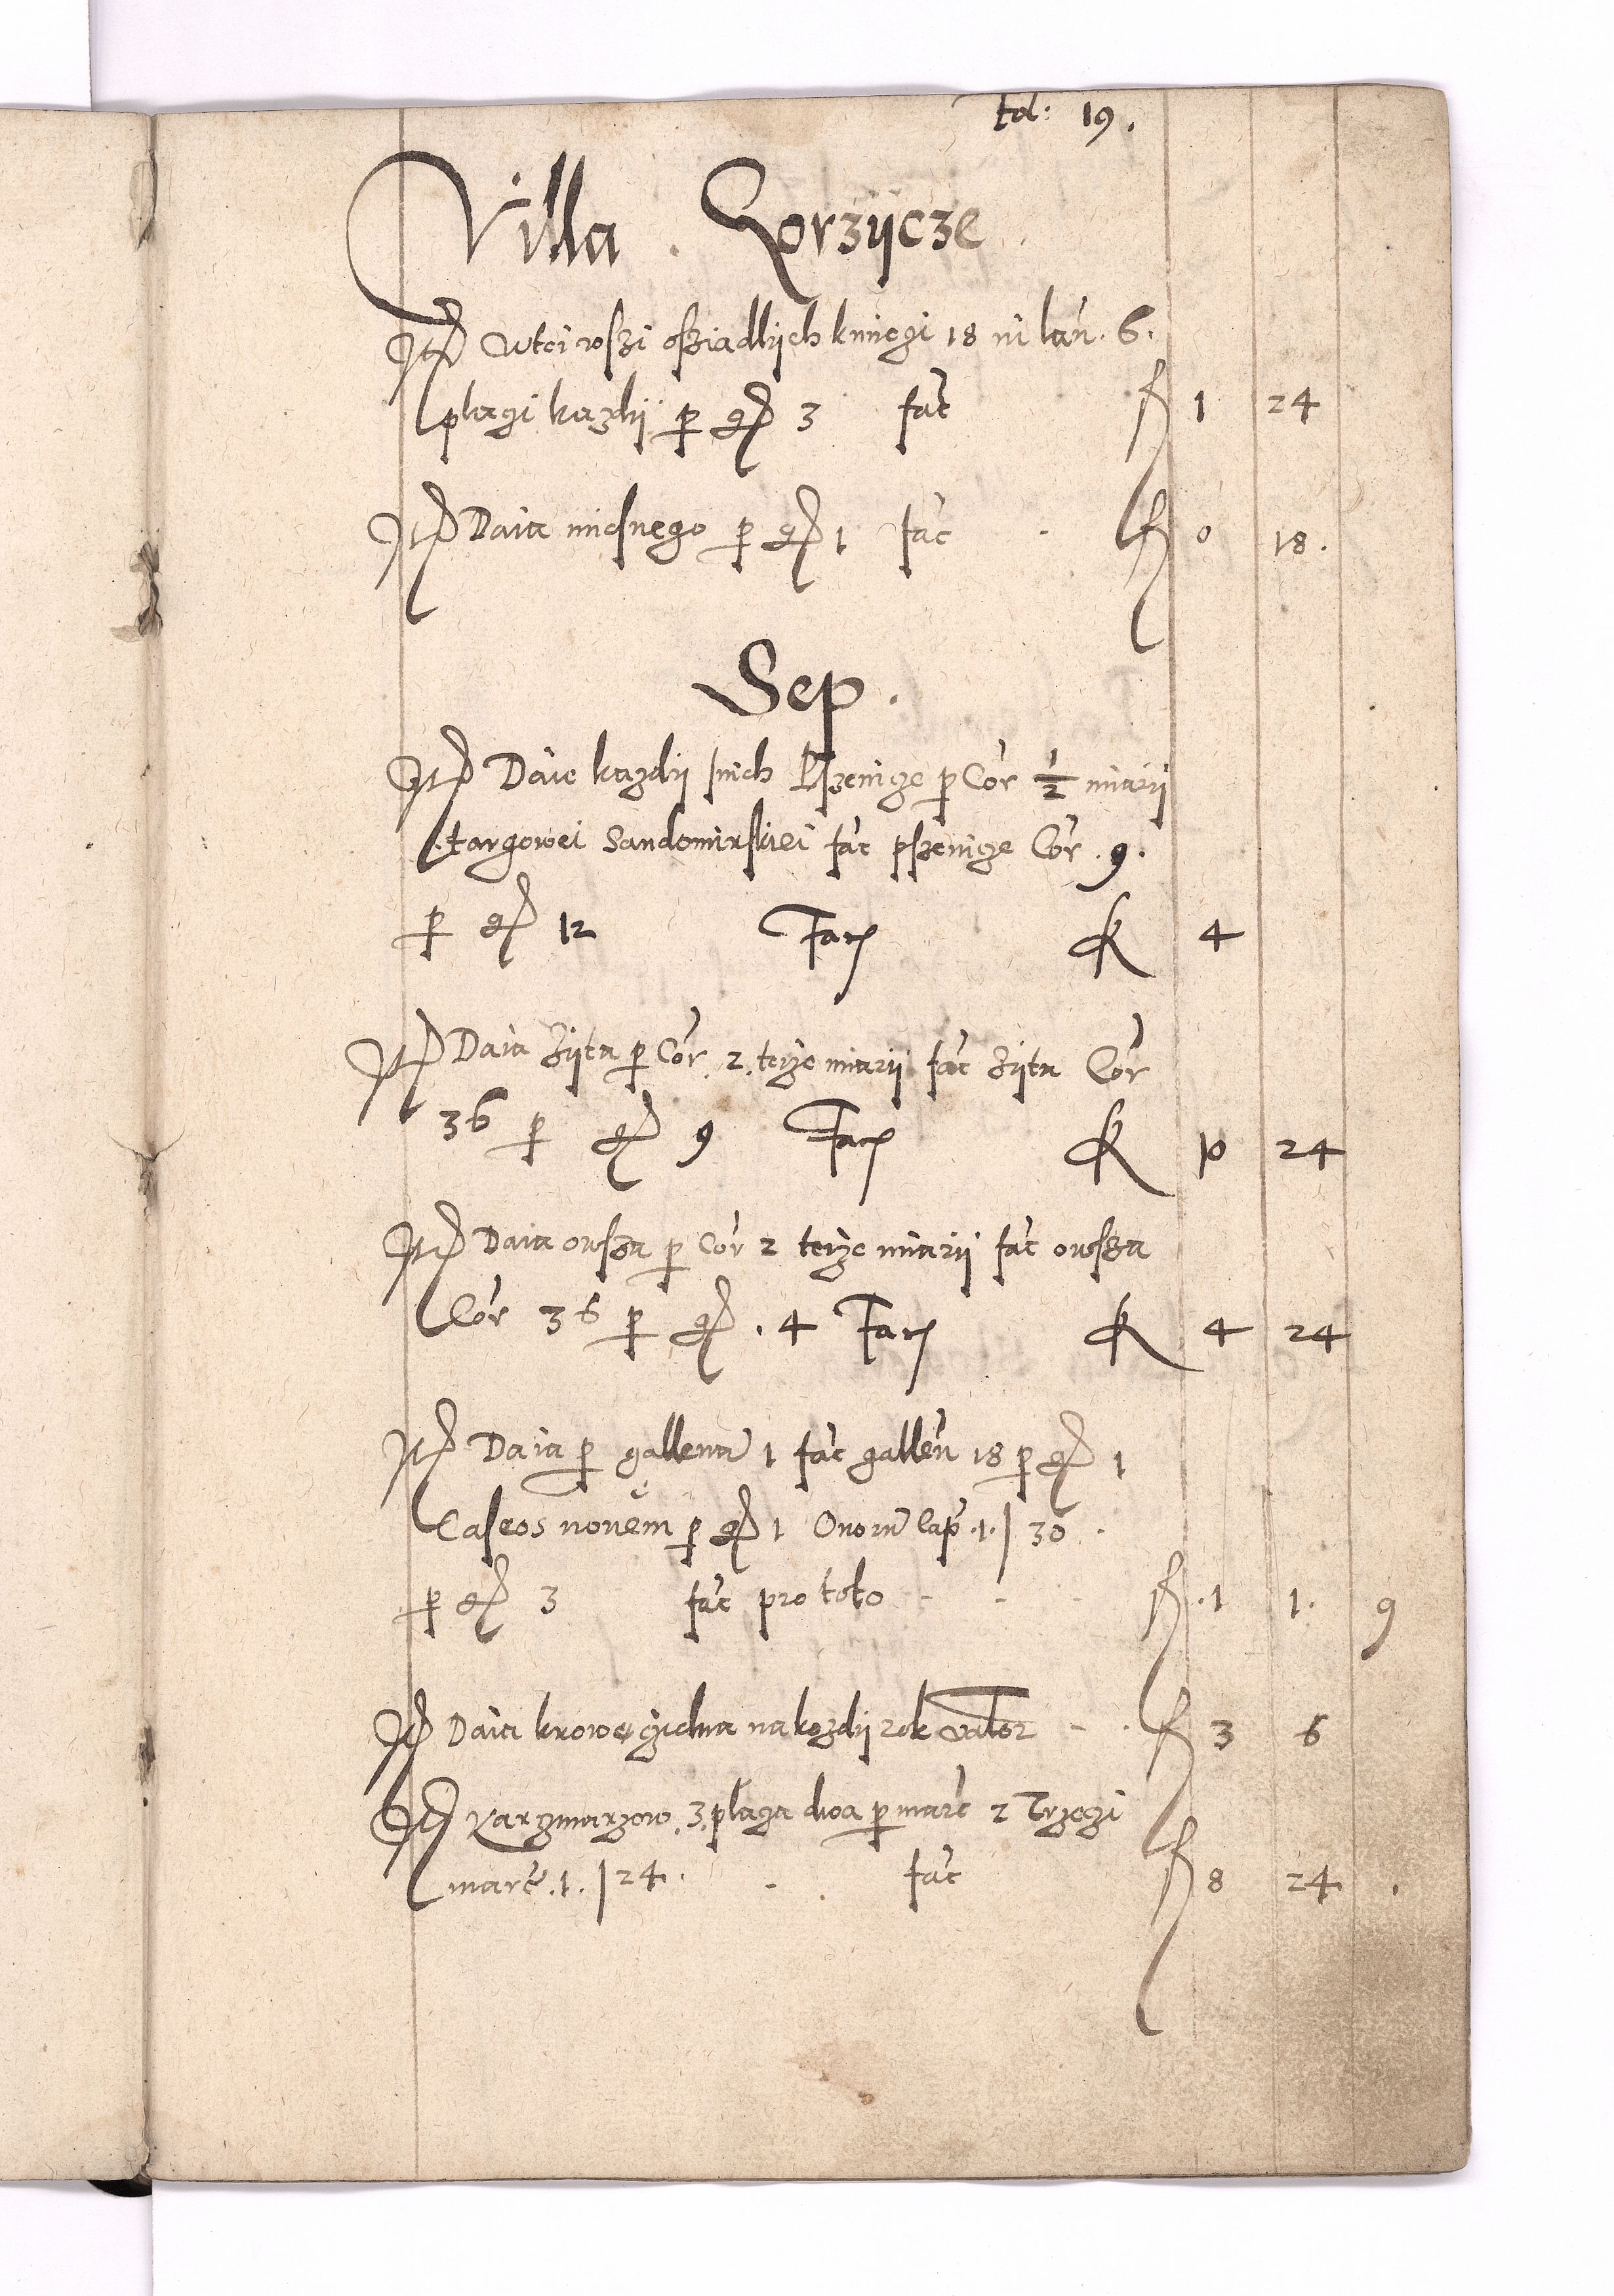 fol: 19.
Villa Gorzÿcze
Itē Wtei wsszi osziadlÿch kmiegi 18 ni łan. 6.
plazgi kazdÿ p gr 3 fac̃ f 1 24
Itē Daia miesnego p gr 1 fac̃ f 0 18.
Sep.
Itē Daie kazdÿ snich Pszenige p Cor ½ miarÿ
targowei Sandomirskiei fac̃ pszenige Cor. 9.
p gr 12 Facit f 4
Itē Daia Zÿta p Cor. 2. teÿze miarÿ fac̃ Zÿta Cor
36 p gr 9 Facit f 10 24
Itē Daia owsza p Cor 2 teÿze miarÿ fac̃ owsza
Cor 36 p gr. 4 Facit f 4 24
Itē Daia p gallena 1 fac̃ gallen 18 p gr 1
Caseos novem p gr 1 Ovorū cap. 1. | 30.
p gr 3 fac̃ pro toto f. 1 1. 9
Itē Daia krowe gedna na kozdÿ rok valor f 3 6
Itē Karzmarzow. 3. plaga dwa p marc 2 Trzegi
marc. 1. | 24. fac̃ f 8 24.